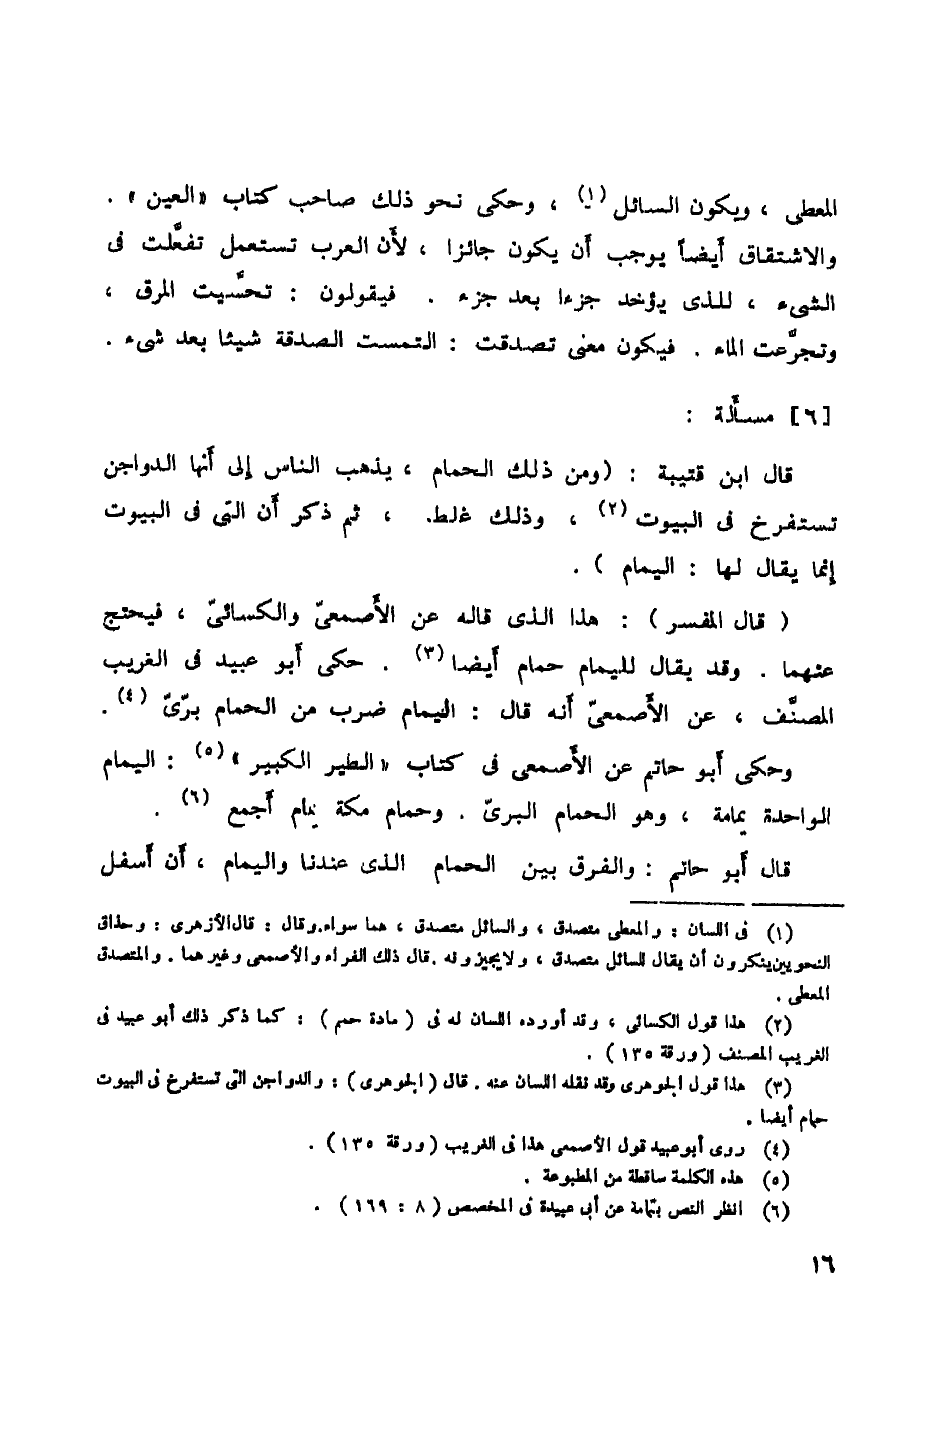 المعطى ، ويكون السائل (١) ، وحكى نحو ذلك صاحب كتاب «العين» .
والاشتقاق أَيضاً يوجب أَن يكون جائزا ، لأَن العرب تستعمل تفعَّلت فى
الشىء ، للذى يؤخد جزءا بعد جزء . فيقولون : تحسَّيت المرق ،
وتجرَّعت الماء . فيكون معنى تصدقت : التمست الصدقة شيئا بعد شىء .
[٦] مسأَلة :
قال ابن قتيبة : (ومن ذلك الحمام ، يذهب الناس إلى أَنها الدواجن
تستفرخ فى البيوت (٢) ، وذلك غلط. ، ثم ذكر أَن التى فى البيوت
إنما يقال لها : اليمام ) .
( قال المفسر ) : هذا الذى قاله عن الأَصمعىّ والكسائىّ ، فيحتج
عنهما . وقد يقال لليمام حمام أَيضا (٣) . حكى أَبو عبيد فى الغريب
المصنَّف ، عن الأَصمعىّ أَنه قال : اليمام ضرب من الحمام برّىّ (٤) .
وحكى أَبو حاتم عن الأَصمعى فى كتاب « الطير الكبير » (٥) : اليمام
الواحدة يمامة ، وهو الحمام البرىّ . وحمام مكة يمام أَجمع (٦) .
قال أَبو حاتم : والفرق بين الحمام الذى عندنا واليمام ، أَن أَسفل
(١) فى اللسان : والمعطى متصدق ، والسائل متصدق ، هما سواء.وقال : قال الأزهرى : وحذاق
النحويين ينكرون أن يقال للسائل متصدق ، ولا يجيزونه .قال ذلك الفراء والأصمعى وغيرهما . والمتصدق
المعطى .
(٢) هذا قول الكسائى ، وقد أورده اللسان له فى ( مادة حمم ) : كما ذكر ذلك أبو عبيد فى
الغريب المصنف ( ورقة ١٣٥ ) .
(٣) هذا قول الجوهرى وقد نقله اللسان عنه . قال ( الجوهرى ) : والدواجن التى تستفرخ فى البيوت
حمام أيضا .
(٤) روى أبو عبيد قول الأصمعى هذا فى الغريب ( ورقة ١٣٥ ) .
(٥) هذه الكلمة ساقطة من المطبوعة .
(٦) انظر النص بتمامة عن أبى عبيدة فى المخصص ( ٨ : ١٦٩ ) .
١٦